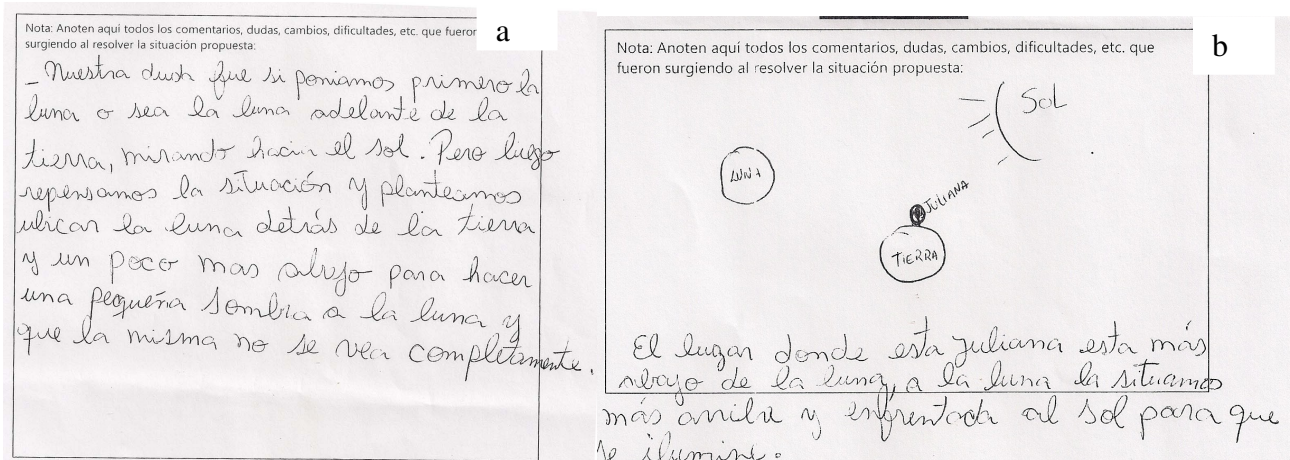 a
Nota: Anoten aquí todos los comentarios, dudas, cambios, dificultades, etc. que fueron
surgiendo al resolver la situación propuesta:
_ Nuestra duda fue si poniamos primero la
luna o sea la luna adelante de la
tierra, mirando hacia el sol. Pero luego
repensamos la situación y planteamos
ubicar la luna detrás de la tierra
y un poco mas abajo para hacer
una pequeña sombra a la luna y
que la misma no se vea completamente.
b
Nota: Anoten aquí todos los comentarios, dudas, cambios, dificultades, etc. que
fueron surgiendo al resolver la situación propuesta:
SOL
LUNA
JULIANA
TIERRA
El lugar donde esta Juliana esta más
abajo de la luna, a la luna la situamos
más arriba y enfrentada al sol para que
se ilumine.